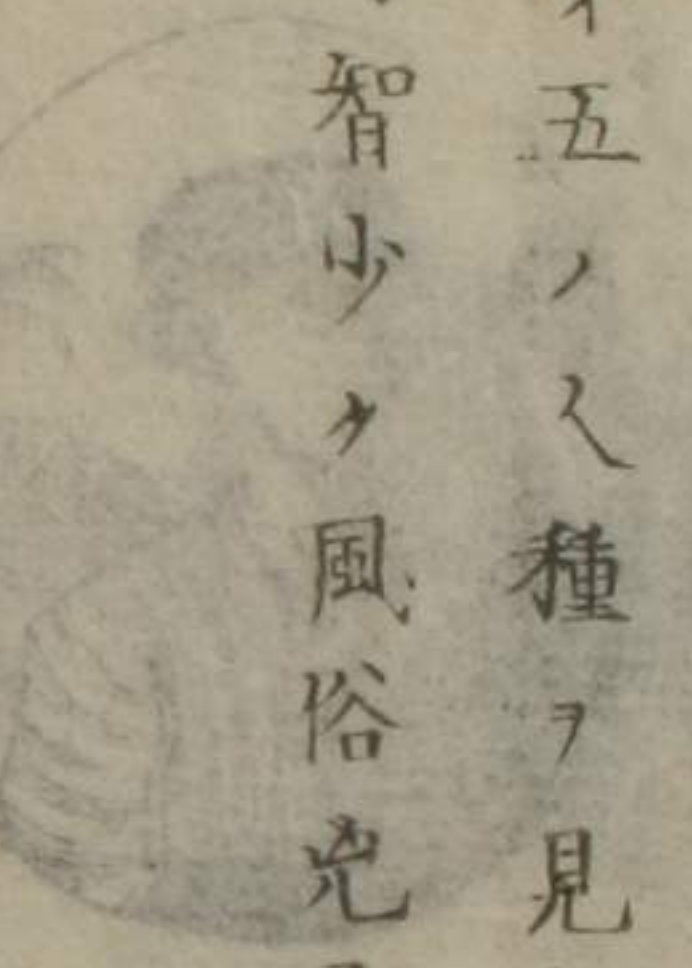 五ノ人種ヲ見
智少ク風俗兇